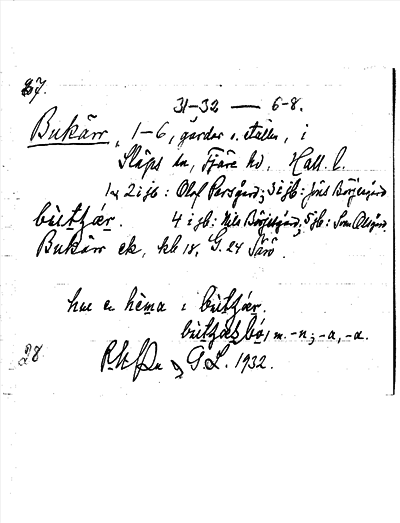 87.
31–32 — 6–8.
Bukärr, 1–6, gårdar o. ställe, i
Släps sn, Fjäre hd, Hall. l.
1 2 i jb: Olof Persgård; 3 i jb: Jöns Börjesgård
bùtʃær. 4 i jb: Nils Börjesgård; 5 jb: Sven Olsgård
Bukärr ek, kb 18, G. 24 Särö.
hu e hèma i bùtʃær.
bùtʃæsbó, m. -n; -a, -a.
28
G L. 1932.